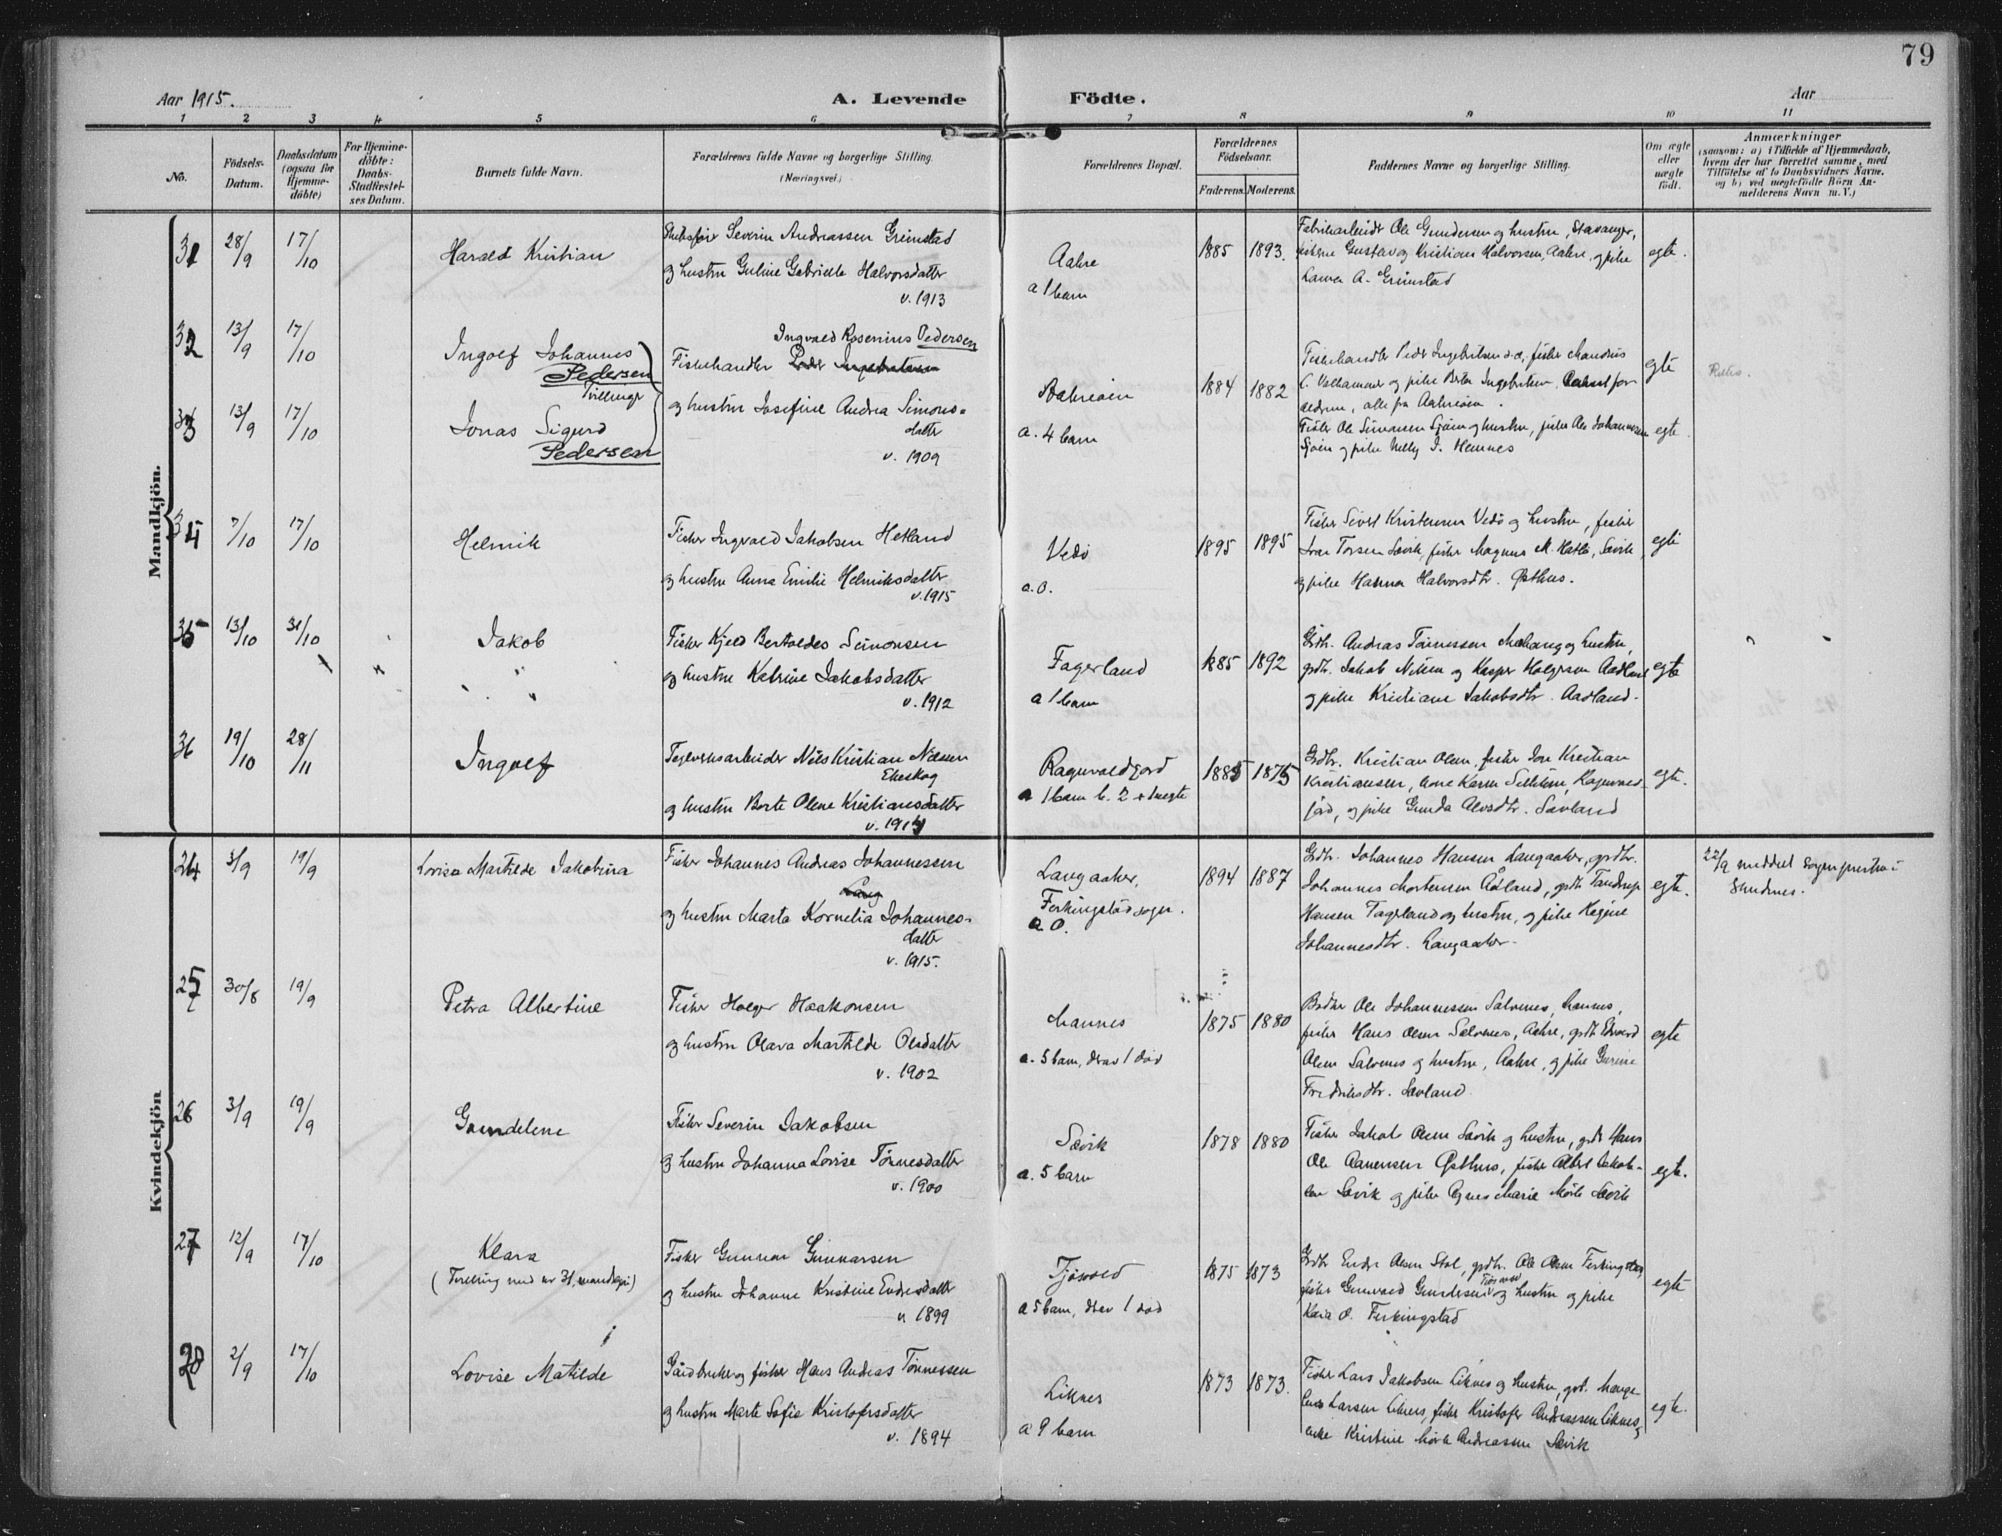 79
Aar 1915.
A. Levende Födte.
Aar
1 2 3 4 5 6 7 8 9 10 11
No.
Födsels-Datum.
Daabsdatum (ogsaa for Hjemme-döbte)
For Hjemme-döbte: Daabs-Stadfæstel-ses Datum.
Barnets fulde Navn.
Forældrenes fulde Navne og borgerlige Stilling.
(Næringsvei.)
Forældrenes Bopæl.
Forældrenes Födselsaar.
Faderens. Moderens.
Faddernes Navne og borgerlige Stilling.
Om ægte eller uægte födt.
Anmærkninger
(saasom: a) i Tilfælde af Hjemmedaab,
hvem der har forrettet samme, med
Tilföielse af to Daabsvidners Navne.
og b) ved uægtefödte Börn An-
melderens Navn m. V.)
Mandkjön.
31 28/9 17/10 Harald Kristian
Severin Andreassen Grimstad
og hustru Guline Gabrielle Halvorsdatter
v. 1913
Aakre
a 1 barn
1885 1893.
Fabrikarbeider Ole Gundersen og hustru, Stavanger,
fiskerne Gustav og Kristian Halvorsen, Aakre, og pike
Laura A. Grimstad
egte.
32 13/9 17/10 Ingolf Johannes
Pedersen
Tvillinger
Ingvald Rosenius Pedersen
Fiskehandler Peder Ingebretsen
33 13/9 17/10 Jonas Sigurd
Pedersen
og hustru Josefine Andrea Simons-
datter
v. 1909
Aakreöen
a. 4 barn
1884 1882
Fiskehandler Peder Ingebritsen
og pike Berta Ingebritsen,
alle fra Aakreöen.
egte
Fisker Ole Simonsen Sjöen og hustru, pike Ale Johannesen
Sjöen og pike Nelly I. Hemnes
egte
34 7/10 17/10 Helmik
Fisker Ingvald Jakobsen Hetland
og hustru Anna Emilie Helmiksdatter
v. 1915
Vedö
a. 0.
1895 1895
Fisker Sivert Kristensen Vedö og hustru, fisker
Torsen Sævik, fisker Magnus M. Sævik,
og pike Hanna Halvorsdtr. Østhus.
egte
35 13/10 31/10 Jakob
Fisker Kjeld Bertoldes Simonsen
og hustru Katrine Jakobsdatter
v. 1912
Fagerland
a 1 barn
1885 1892
Grdbr. Andreas Tönnessen og hustru,
grdbr. Jakob Nilsen og Kasper Holgersen Aadland
og pike Kristiane Jakobsdtr. Aadland.
egte
36 19/10 28/11 Ingolf
Teglverksarbeider Nils Kristian Nilssen
Ekeskog
og hustru Berte Olene Kristiansdatter
v. 1914
Ragnvaldjord
a 1 barn b. 2 + 1 uegte
1885 1875
Grdbr. Kristian Olsen, fisker Jon Kristian
Kristiansen,
og pike Gunda Alvsdtr. Sævland
egte.
Kvindekjön
24 3/9 19/9 Lovise Martilde Jakobina
Fisker Johannes Andreas Johannessen
Lang
og hustru Marta Kornelia Johannes-
datter
v. 1915.
Langaaker,
Ferkingstad sogn.
a. 0.
1894 1887
Grdbr. Johannes Hansen Langaaker, grdbr.
Johannes Mortensen Ådland, grdbr. Tandrup
Hansen Fagerland og hustru, og pike Regine
Johannesdtr. Langaaker.
egte.
22/9 meddelt sogneprest i
Skudnes.
25 30/8 19/9 Petra Albertine
Fisker Holger Haakonsen
og hustru Olava Martilde Olsdatter
v. 1902
Mannes
a. 5 barn, derav 1 död
1875 1880
Ole Johannessen Salvenes, Mannes,
fisker Hans Olsen Salvenes, Aakre, grdbr. Edvard
Olsen Salvenes og hustru, Aakre, og pike Gurine
Fredriksdtr. Sævland
egte
26 3/9 19/9 Gundelene
Fisker Severin Jakobsen
og hustru Johanna Lovise Tönnesdatter
v. 1900
Sævik
a. 5 barn
1878 1880
Fisker Jakob Olsen Sævik og hustru, grdbr. Hans
Ole Aanensen Østhus, fisker Albert Jakob-
sen Sævik og pike Agnes Marie Sævik
egte.
27 12/9 17/10 Klara
(Tvilling med nr 31, mandkjön)
Fisker Gunnar Gunnarsen
og hustru Johanne Kristine Endresdatter
v. 1899
Tjösvold
a 5 barn, derav 1 död
1875 1873
Grdbr. Endre Olsen Stol, grdbr. Ole Olsen Ferkingstad,
fisker Gunvald Gundersen Tjösvold og hustru og pike
Kaia O. Ferkingstad
egte
28 2/9 17/10 Lovise Matilde
Gårdbruker og fisker Hans Andreas Tönnessen
og hustru Marte Sofie Kristofersdatter
v. 1894
Liknes
a 9 barn
1873 1873.
Fisker Lars Jakobsen Liknes og hustru,
Larsen Liknes, fisker Kristofer Andreassen Liknes,
enke Kristine Andreassen Sævik
egte.